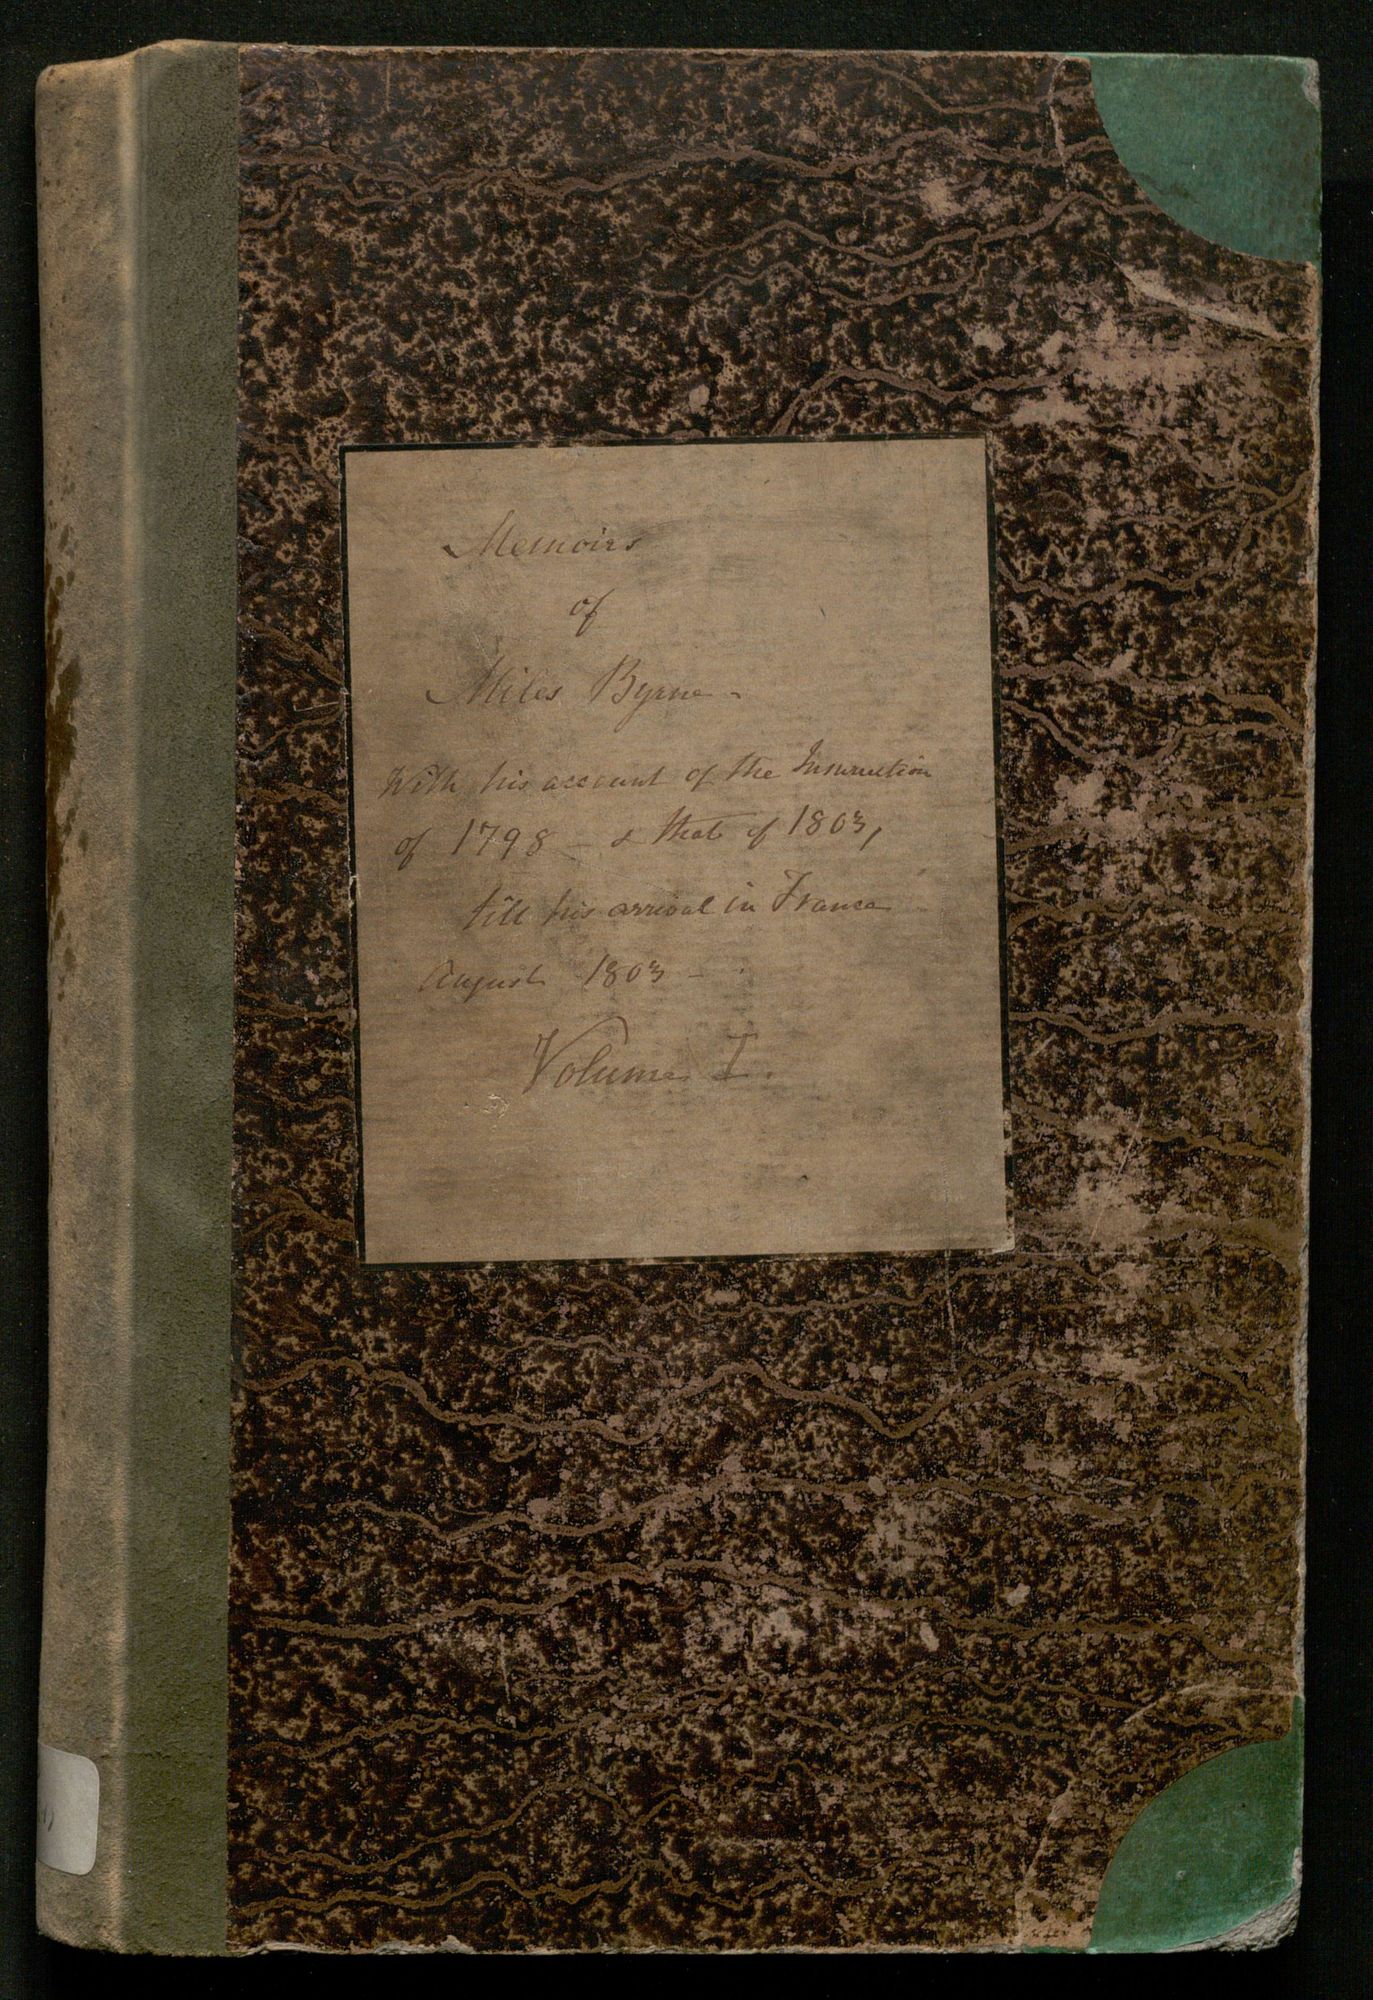 Memoirs
of
Miles Byrne -
With his account of the Insurrection
of 1798 - & that of 1803,
till his arrival in France
August 1803 -
Volume I.